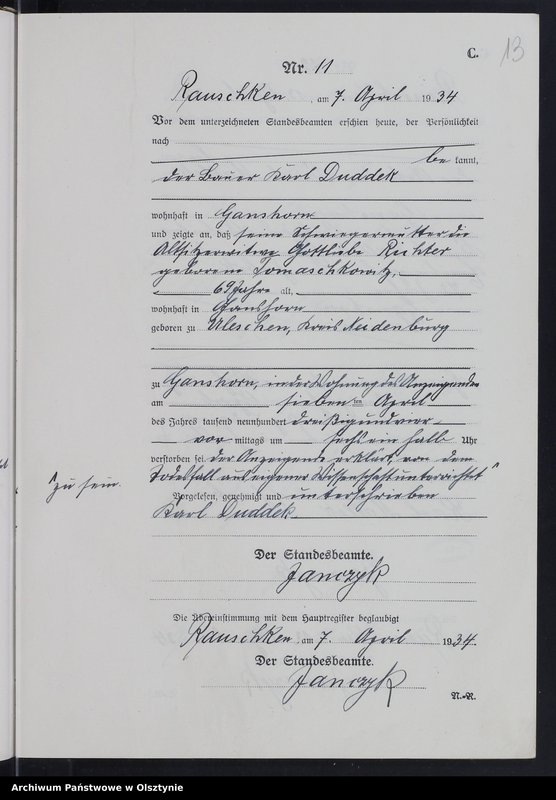 C.
13
Nr. 11
Rauschken, am 7. April 1934
Vor dem unterzeichneten Standesbeamten erschien heute, der Persönlichkeit
nach
bekannt,
der Bauer Karl Duddek
wohnhaft in Ganshorn
und zeigte an, daß seine Schwiegermutter die
Altsitzerwitwe Gottliebe Richter
geborene Tomaschkowitz,
69 Jahre alt,
wohnhaft in Ganshorn
geboren zu Uleschen, Kreis Neidenburg
zu Ganshorn, in der Wohnung des Anzeigenden
am sieben ten April
des Jahres tausend neunhundert dreißig und vier
vor mittags um sechs ein halb Uhr
verstorben sei. der Anzeigende erklärt, von dem
Todesfall aus eigener Wissenschaft unterrichtet "
"zu sein.
Vorgelesen, genehmigt und unterschrieben
Karl Duddek
Der Standesbeamte.
Janczyk
Die Übereinstimmung mit dem Hauptregister beglaubigt
Rauschken, am 7. April 1934.
Der Standesbeamte.
Janczyk
N.-R.
Archiwum Państwowe w Olsztynie